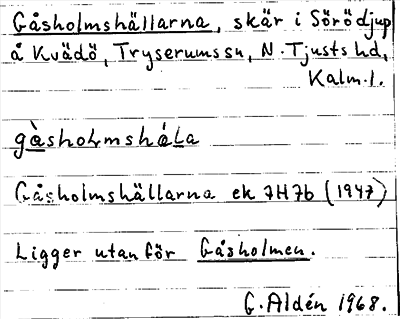 Gåsholmshällarna, skär i Sörödjup
å Kvädö, Tryserums sn, N. Tjusts hd,
Kalm. l.
gàsholmshála
Gåsholmshällarna ek 7H7b (1947)
Ligger utanför Gåsholmen.
G. Aldén 1968.